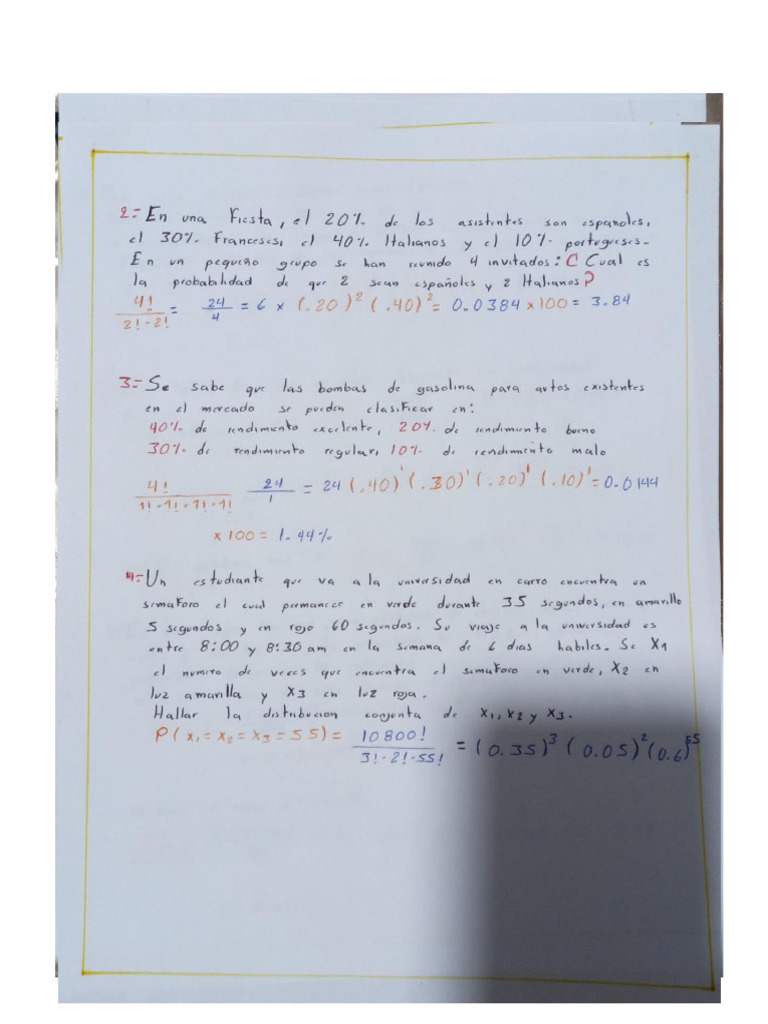 2.= En una Fiesta, el 20% de los asistentes son españoles,
el 30% Franceses, el 40% Italianos y el 10% portugueses.
En un pequeño grupo se han reunido 4 invitados: ¿Cual es
la probabilidad de que 2 sean españoles y 2 Italianos?
4! / 2!·2! = 24/4 = 6 x (.20)² (.40)² = 0.0384 x100 = 3.84
3.= Se sabe que las bombas de gasolina para autos existentes
en el mercado se pueden clasificar en:
40% de rendimiento excelente, 20% de rendimiento bueno
30% de rendimiento regular, 10% de rendimiento malo
4! / 1!·1!·1!·1! 24/1 = 24 (.40)¹ (.30)¹ (.20)¹ (.10)¹ = 0.0144
x 100 = 1.44%
4.= Un estudiante que va a la universidad en carro encuentra un
semaforo el cual permanece en verde durante 35 segundos, en amarillo
5 segundos y en rojo 60 segundos. Su viaje a la universidad es
entre 8:00 y 8:30 am en la semana de 6 dias habiles. Se X1
el numero de veces que encuentra el semaforo en verde, X2 en
luz amarilla y X3 en luz roja.
Hallar la distribucion conjunta de X1, X2 y X3.
P(X1 = X2 = X3 = 55) = 10800! / 3!·2!·55! = (0.35)³ (0.05)² (0.6)⁵⁵